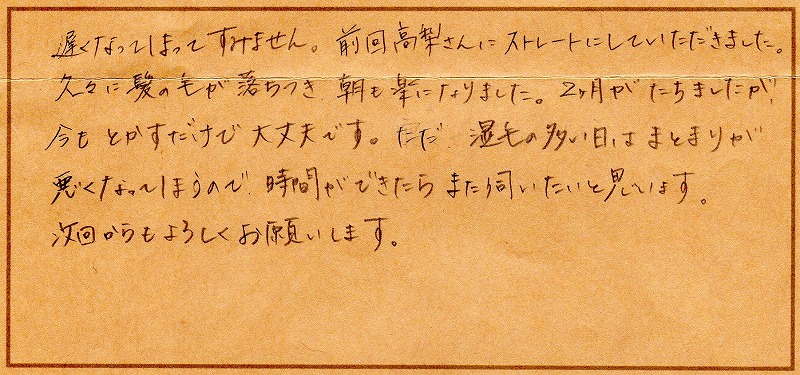 遅くなってしまってすみません。前回高梨さんにストレートにしていただきました。
久々に髪の毛が落ちつき、朝も楽になりました。2ヶ月がたちましたが、
今もとかすだけで大丈夫です。ただ、湿毛の多い日はまとまりが
悪くなってしまうので、時間ができたらまた伺いたいと思います。
次回からもよろしくお願いします。